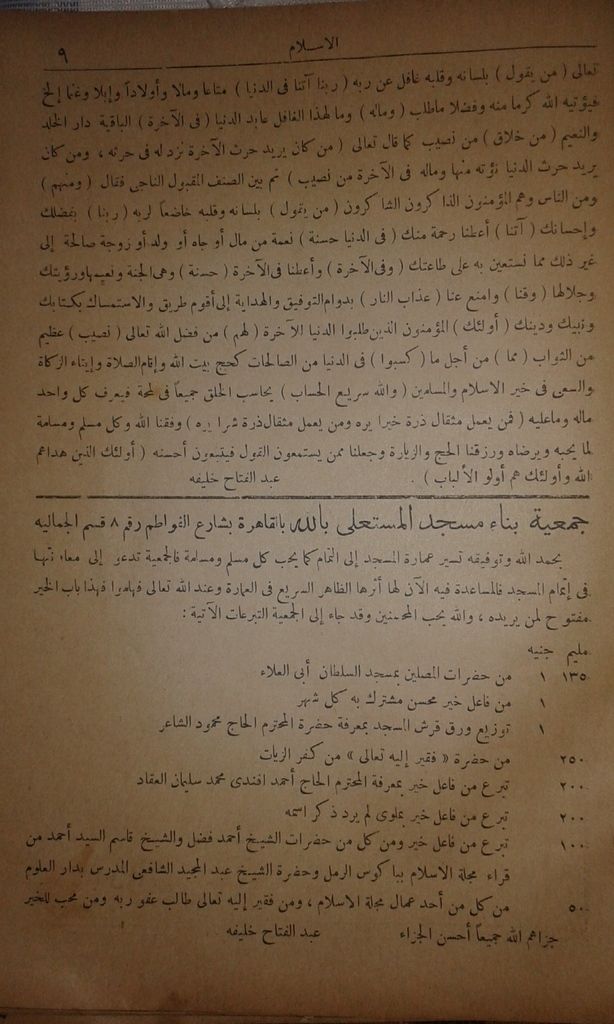 الاسلام
٩
تعالى ( من يقول ) بلسانه وقلبه غافل عن ربه ( ربنا آتنا فى الدنيا ) متاعا ومالا وأولاداً وإبلا وغنما إلخ
فيؤتيه الله كرما منه وفضلا ماطلب ( وماله ) وما لهذا الغافل عابد الدنيا ( فى الآخرة ) الباقية دار الخلد
والنعيم ( من خلاق ) من نصيب كما قال تعالى ( من كان يريد حرث الآخرة نزد له فى حرثه ، ومن كان
يريد حرث الدنيا نؤته منها وماله فى الآخرة من نصيب ) ثم بين الصنف المقبول الناجى فقال ( ومنهم )
ومن الناس وهم المؤمنون الذاكرون الشاكرون ( من يقول ) بلسانه وقلبه خاضعاً لربه ( ربنا ) بفضلك
وإحسانك ( آتنا ) أعطنا رحمة منك ( فى الدنيا حسنة ) نعمة من مال أو جاه أو ولد أو زوجة صالحة إلى
غير ذلك مما نستعين به على طاعتك ( وفى الآخرة ) وأعطنا فى الآخرة ( حسنة ) وهى الجنة ونعيمها ورؤيتك
وجلالها ( وقنا ) وامنع عنا ( عذاب النار ) بدوام التوفيق والهداية إلى أقوم طريق والاستمساك بكتابك
ونبيك ودينك ( أولئك ) المؤمنون الذين طلبوا الدنيا للآخرة ( لهم ) من فضل الله تعالى ( نصيب ) عظيم
من الثواب ( مما ) من أجل ما ( كسبوا ) فى الدنيا من الصالحات كحج بيت الله وإقام الصلاة وإيتاء الزكاة
والسعى فى خير الاسلام والمسلمين ( والله سريع الحساب ) يحاسب الخلق جميعاً فى لمحة فيعرف كل واحد
ماله وماعليه ( فمن يعمل مثقال ذرة خيرا يره ومن يعمل مثقال ذرة شرا يره ) وفقنا الله وكل مسلم ومسلمة
لما يحبه ويرضاه ورزقنا الحج والزيارة وجعلنا ممن يستمعون القول فيتبعون أحسنه ( أولئك الذين هداهم
الله وأولئك هم أولو الألباب ) . عبد الفتاح خليفه
جمعية بناء مسجد المستعلى بالله بالقاهرة بشارع الفواطم رقم ٨ قسم الجماليه
بحمد الله وتوفيقه تسير عمارة المسجد إلى التمام كما يحب كل مسلم ومسلمة فالجمعية تدعو إلى معاونتها
فى إتمام المسجد فالمساعدة فيه الآن لها أثرها الظاهر السريع فى العمارة وعند الله تعالى فهلموا فهذا باب الخير
مفتوح لمن يريده ، والله يحب المحسنين وقد جاء إلى الجمعية التبرعات الآتية :
مليم جنيه
١٣٥ ١ من حضرات المصلين بمسجد السلطان أبى العلاء
١ من فاعل خير محسن مشترك به كل شهر
١ توزيع ورق قرش المسجد بمعرفة حضرة المحترم الحاج محمود الشاعر
٢٥٠ من حضرة « فقير إليه تعالى » من كفر الزيات
٢٠٠ تبرع من فاعل خير بمعرفة المحترم الحاج أحمد افندى محمد سليمان العقاد
٢٠٠ تبرع من فاعل خير بملوى لم يرد ذكر اسمه
١٠٠ تبرع من فاعل خير ومن كل من حضرات الشيخ أحمد فضل والشيخ قاسم السيد أحمد من
قراء مجلة الاسلام بباكوس الرمل وحضرة الشيخ عبد المجيد الشافعى المدرس بدار العلوم
٥٠ من كل من أحد عمال مجلة الاسلام ، ومن فقير إليه تعالى طالب عفو ربه ومن محب للخير
جزاهم الله جميعاً أحسن الجزاء عبد الفتاح خليفه